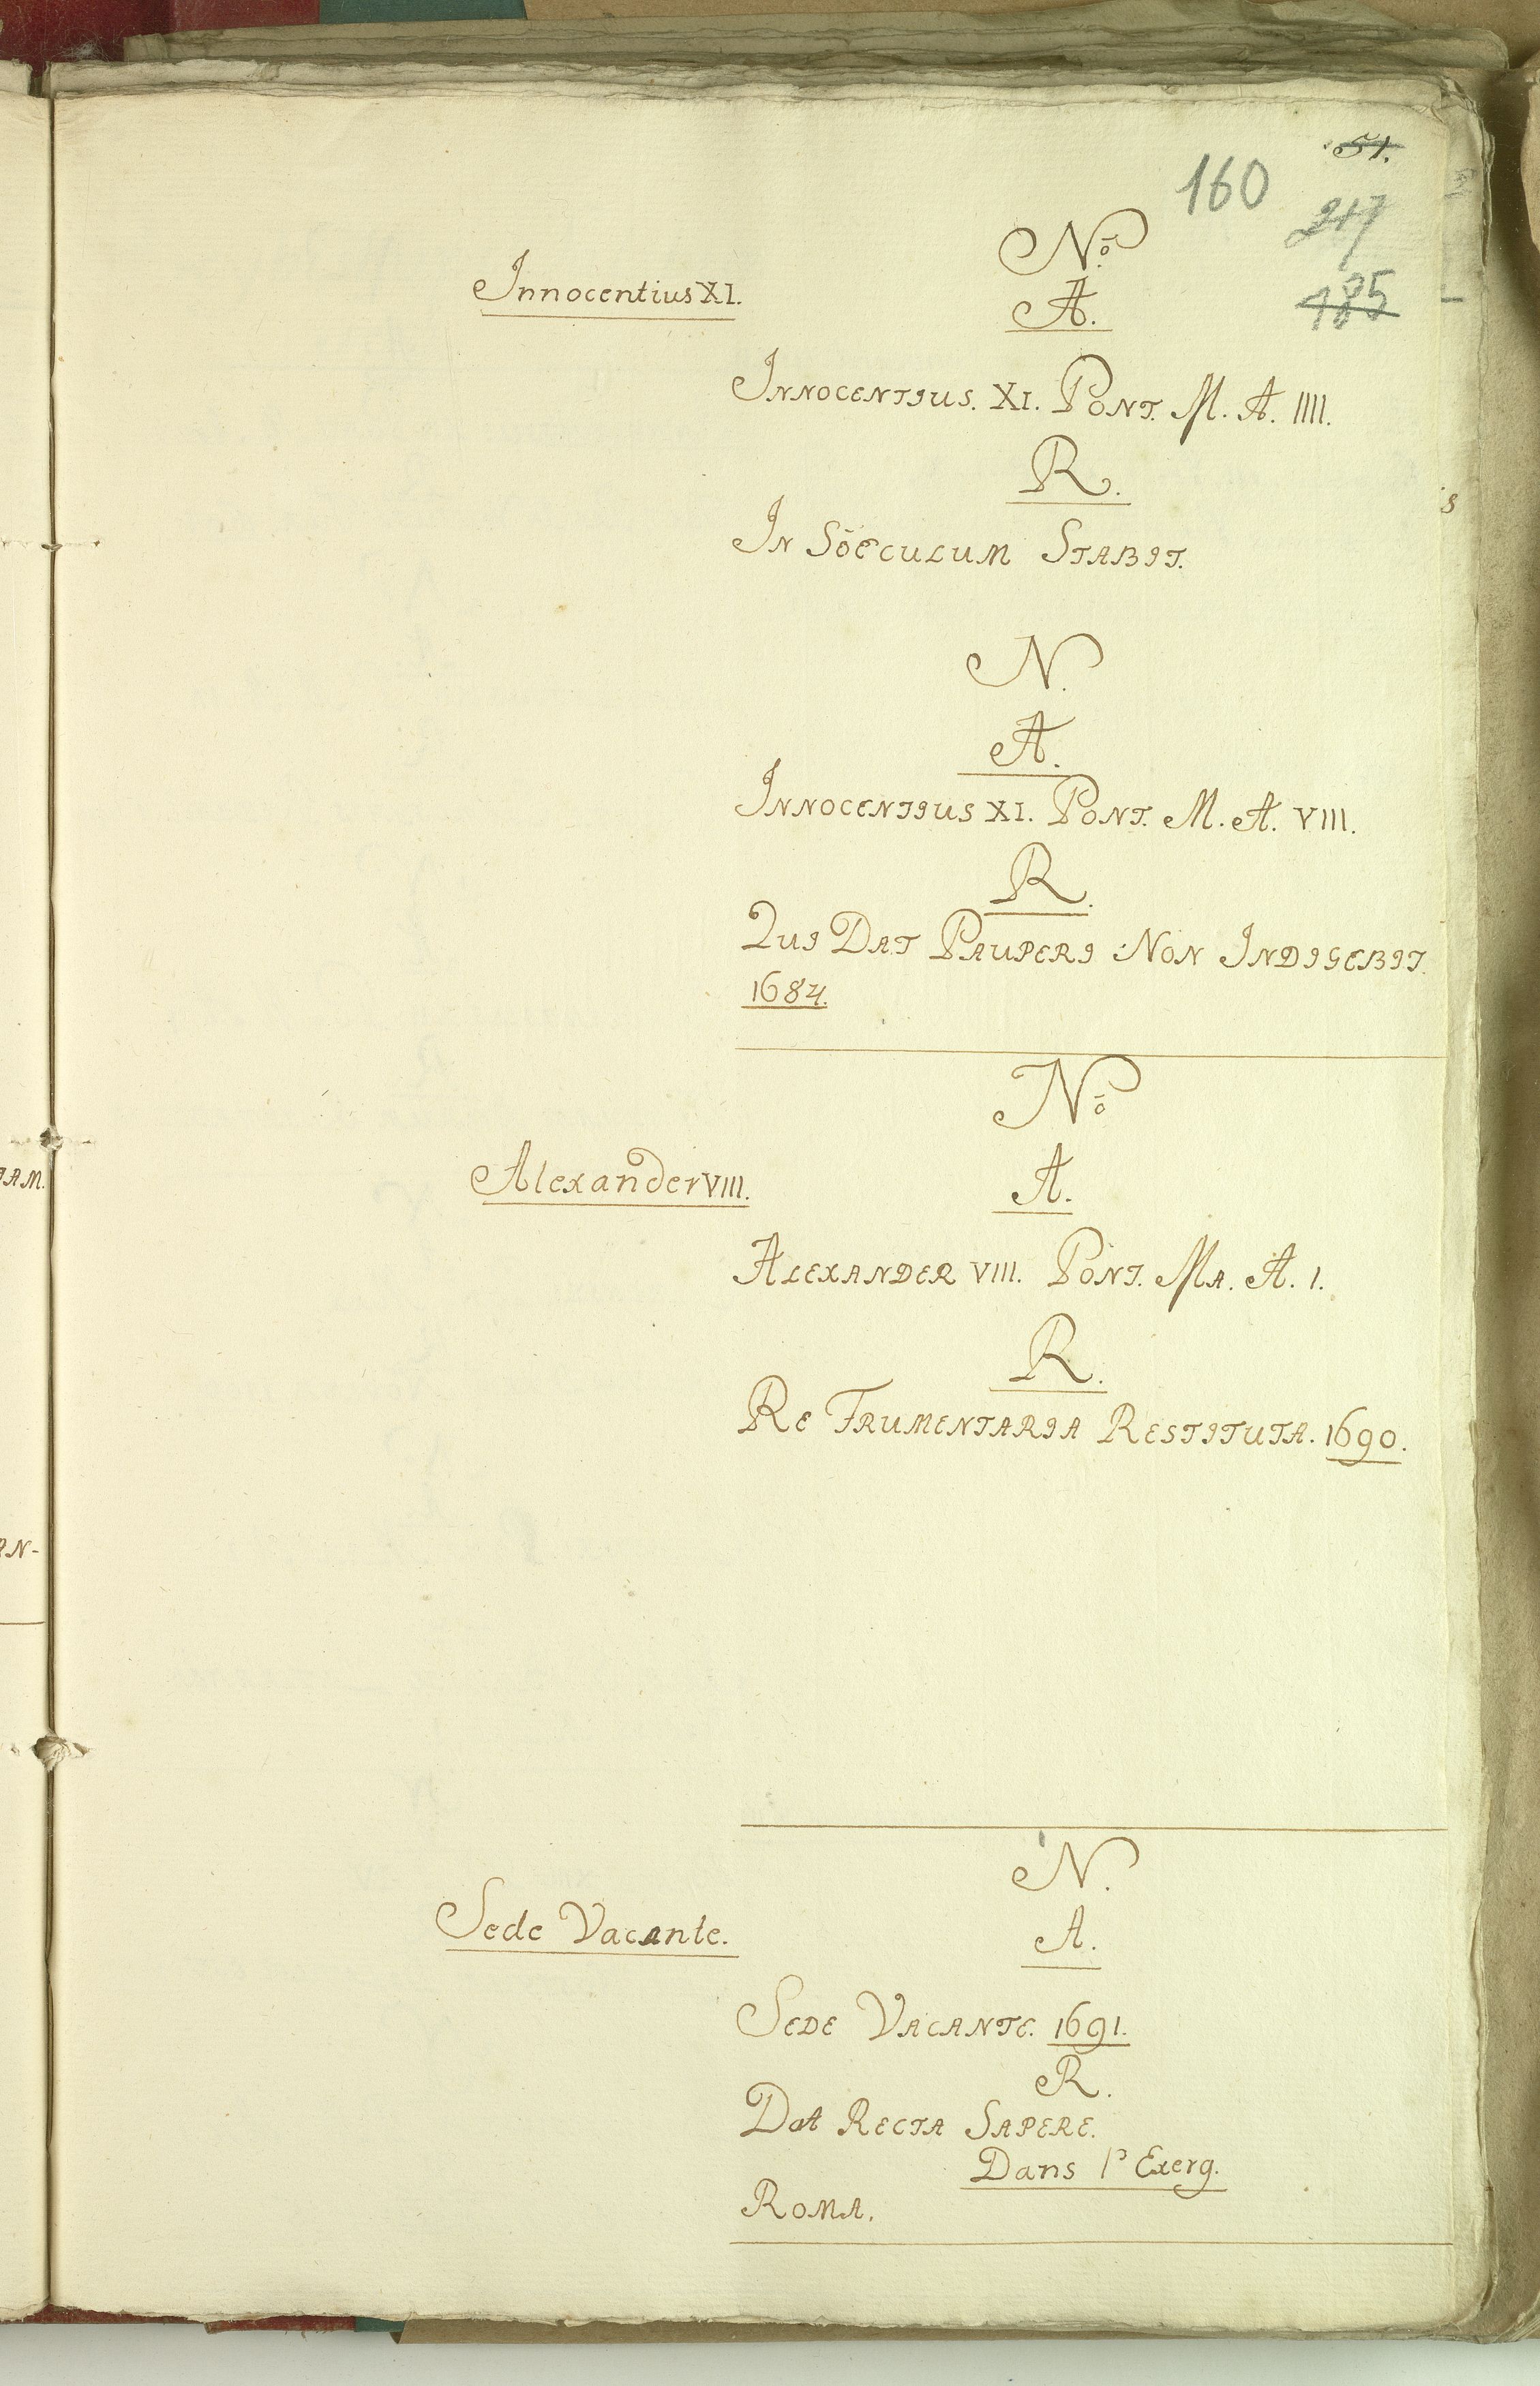 51.
160
217
185
No
Innocentius XI.
A.
INNOCENTIUS. XI. PONT. M. A. IIII.
R.
IN SÖECULUM STABIT.
N.
A.
INNOCENTIUS XI. PONT. M. A. VIII.
R.
QUI DAT PAUPERI NON INDIGEBIT.
1684.
No
Alexander VIII.
A.
ALEXANDER VIII. PONT. MA. A. I.
R.
RE FRUMENTARIA RESTITUTA. 1690.
N.
Sede Vacante.
A.
SEDE VACANTE. 1691.
R.
DAT RECTA SAPERE.
Dans l'Exerg.
ROMA.